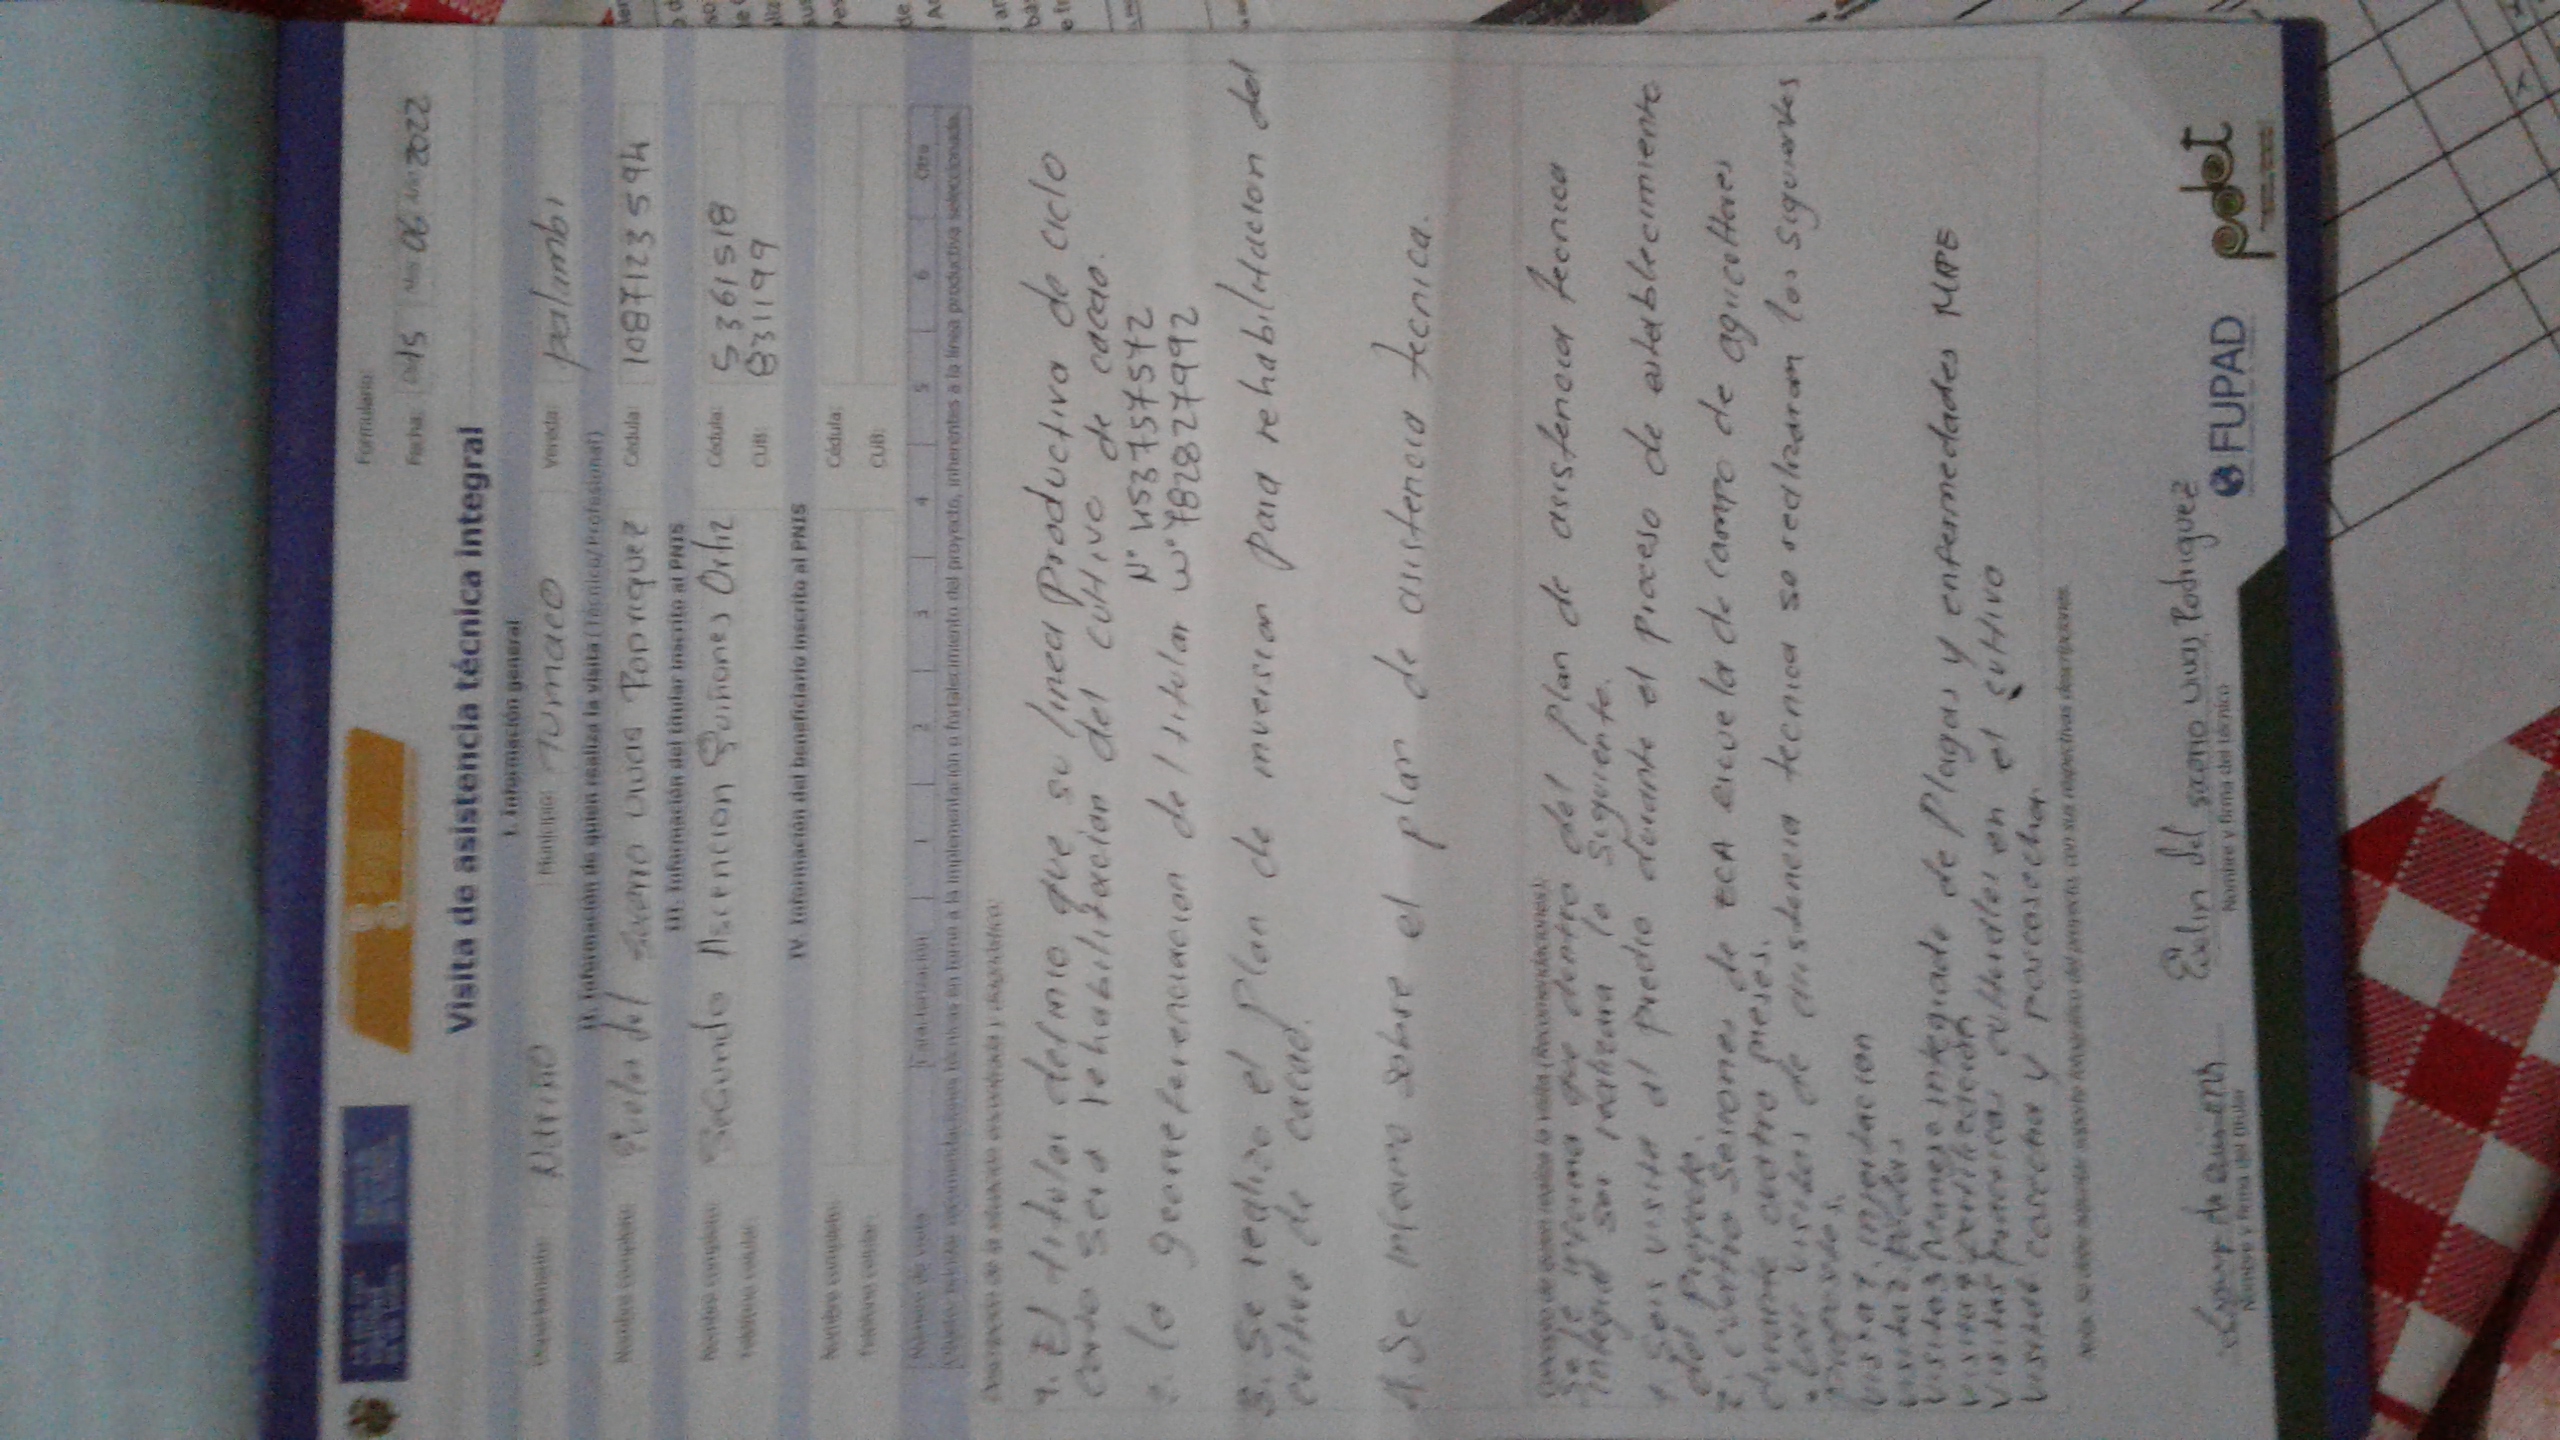 Formulario:
Fecha: Día 15 Mes 06 Año 2022
Visita de asistencia técnica integral
I. Información general
Departamento: Nariño Municipio: Tumaco Vereda: palambi
II. Información de quien realiza la visita (Técnico/Profesional)
Nombre completo: del Cédula: 1087123594
III. Información del titular inscrito al PNIS
Nombre completo: Segundo Ascencion Quiñones Ortiz Cédula: 5361518
Teléfono celular: CUB: 831199
IV. Información del beneficiario inscrito al PNIS
Nombre completo: Cédula:
Teléfono celular: CUB:
Número de visita Caracterización 1 2 3 4 5 6 Otra
técnicas en torno a la implementación o fortalecimiento del proyecto, inherentes a la línea productiva seleccionada.
Descripción de la situación encontrada y diagnóstico:
1. El titular definio que su linea Productiva de ciclo
corto sera rehabilitacion del cultivo de cacao.
N° 153757572
2. la georreferenciacion del titular W° 782827992
3. Se realizo el Plan de inversion para rehabilitacion del
cultivo de cacao.
4. Se informo sobre el plan de asistencia tecnica.
Concepto de quien realiza la visita (Recomendaciones):
Se le informa que dentro del plan de asistencia tecnica
integral se realizara lo Siguiente.
1. Seis visita al predio durante el proceso de establecimiento
del Proyecto.
2. cuatro Sesiones de ECA escuela de campo de agricultores
durante cuatro meses.
* Las visitas de asistencia tecnica se realizaran los siguientes
visita 2. Podas
visita 3 Manejo integrado de Plagas y enfermedades MIPE
visita 4 fertilizacion
visita 5 practicas culturales en el cultivo
visita 6 cosecha y poscosecha.
Nota: Se debe adjuntar soporte fotográfico del proyecto, con sus respectivas descripciones.
Nombre y firma del titular
Eolin Del socorro Rodriguez
Nombre y firma del técnico
FUPAD
pdet